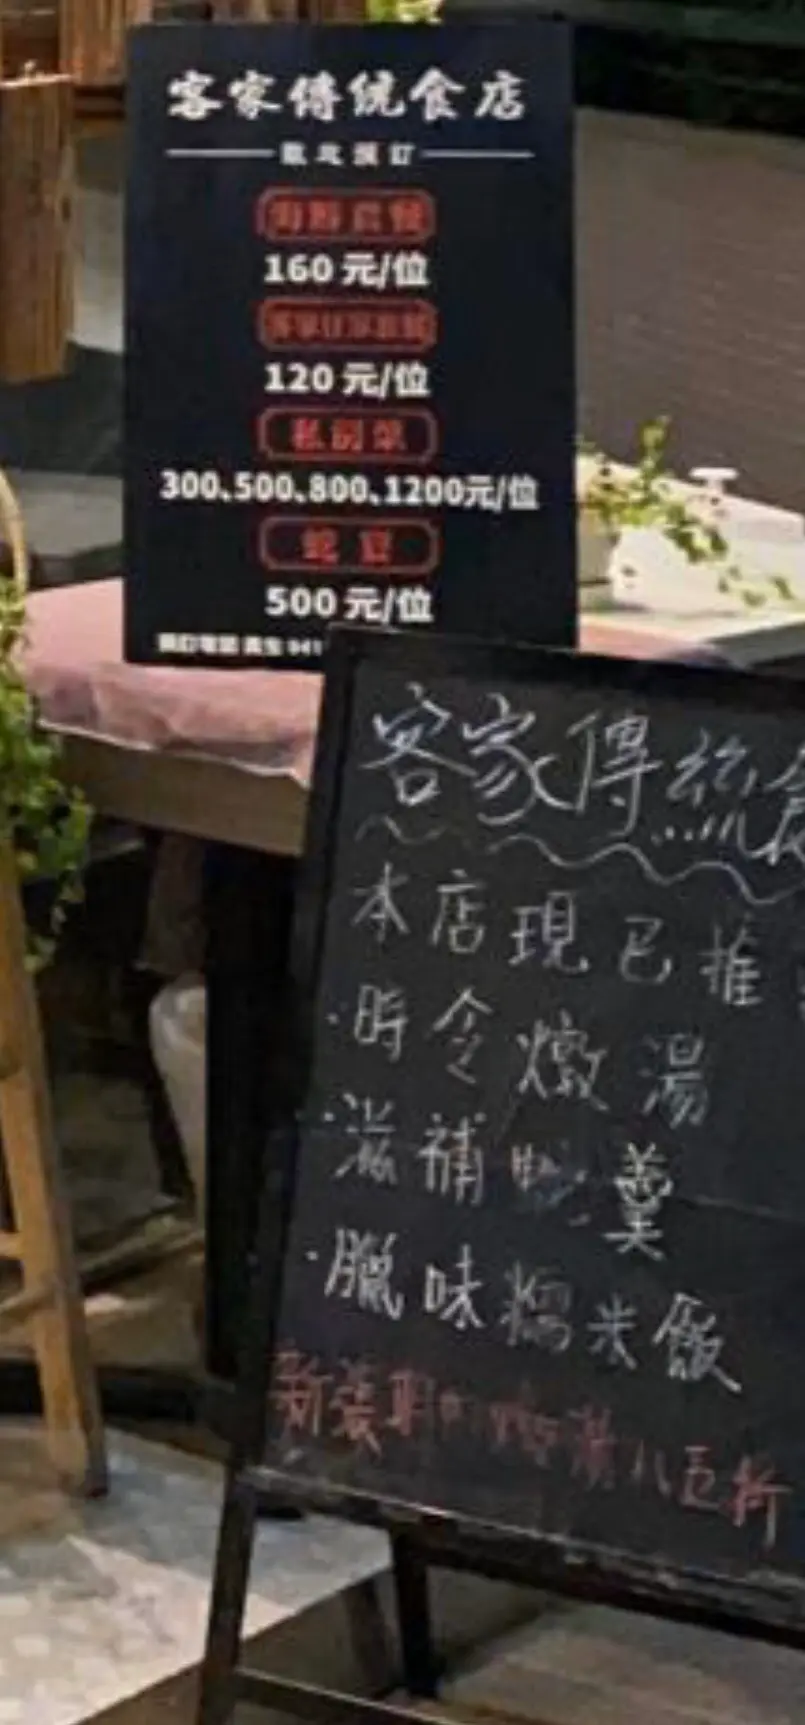 客家傳統食店
歡迎預訂
海鮮套餐
160 元/位
120 元/位
私房菜
300、500、800、1200元/位
蛇宴
500 元/位
預訂電話
客家傳統食
本店現已推
·時令燉湯
·滋補 羹
·臘味糯米飯
新裝期 燉湯八五折